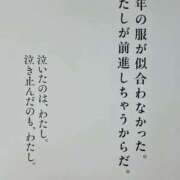 年の服が似合わなかった。
たしが前進しちゃうからだ。
泣いたのは、わたし。
泣き止んだのも、わたし。